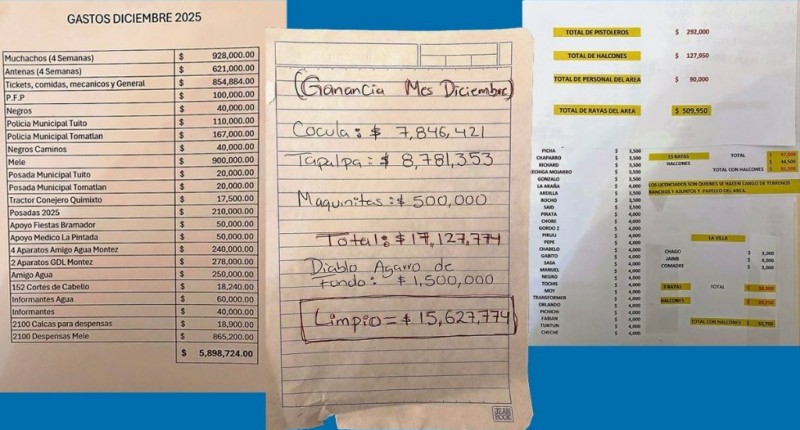 GASTOS DICIEMBRE 2025
Muchachos (4 Semanas) $ 928,000.00
Antenas (4 Semanas) $ 621,000.00
Tickets, comidas, mecanicos y General $ 854,884.00
P.F.P $ 100,000.00
Negros $ 40,000.00
Policia Municipal Tuito $ 110,000.00
Policia Municipal Tomatlan $ 167,000.00
Negros Caminos $ 40,000.00
Mele $ 900,000.00
Posada Municipal Tuito $ 20,000.00
Posada Municipal Tomatlan $ 20,000.00
Tractor Conejero Quimixto $ 17,500.00
Posadas 2025 $ 210,000.00
Apoyo Fiestas Bramador $ 50,000.00
Apoyo Medico La Pintada $ 50,000.00
4 Aparatos Amigo Agua Montez $ 240,000.00
2 Aparatos GDL Montez $ 278,000.00
Amigo Agua $ 250,000.00
152 Cortes de Cabello $ 18,240.00
Informantes Agua $ 60,000.00
Informantes $ 40,000.00
2100 Calcas para despensas $ 18,900.00
2100 Despensas Mele $ 865,200.00
$ 5,898,724.00
(Ganancia Mes Diciembre)
Cocula: $ 7,846,421
Tapalpa: $ 8,781,353
Maquinitas: $ 500,000
Total: $ 17,127,774
Diablo Agarro de
Fondo: $ 1,500,000
Limpio = $ 15,627,774
JEAN BOOK
TOTAL DE PISTOLEROS $ 292,000
TOTAL DE HALCONES $ 127,950
TOTAL DE PERSONAL DEL AREA $ 90,000
TOTAL DE RAYAS DEL AREA $ 509,950
PICHA $ 3,500
CHAPARRO $ 3,500
RICHARD $ 3,500
MOJARRO $ 3,500
GONZALO $ 3,500
LA ARAÑA $ 4,000
ARDILLA $ 3,500
BOCHO $ 3,500
SAID $ 3,500
PIRATA $ 4,000
CHORE $ 4,000
GORDO 2 $ 4,000
PIRULI $ 4,000
PEPE $ 4,000
CHABELO $ 4,000
GABITO $ 4,000
SASA $ 4,000
MANUEL $ 4,000
NEGRO $ 4,000
TOCHIS $ 4,000
MOY $ 4,000
TRANSFORMER $ 4,000
ORLANDO $ 4,000
PICHICHI $ 4,000
FABIAN $ 4,000
TUNTUN $ 4,000
CHICHE $ 4,000
RAYAS TOTAL
HALCONES
TOTAL CON HALCONES
LOS LICENCIADOS SON QUIENES SE HACEN CARGO DE TERRENOS
RANCHOS Y AJUNTOS Y PAPELEO DEL AREA.
LA VILLA
CHAGO $ 3,000
JAIME $ 4,000
COMADRE $ 3,000
3 RAYAS TOTAL
HALCONES
TOTAL CON HALCONES